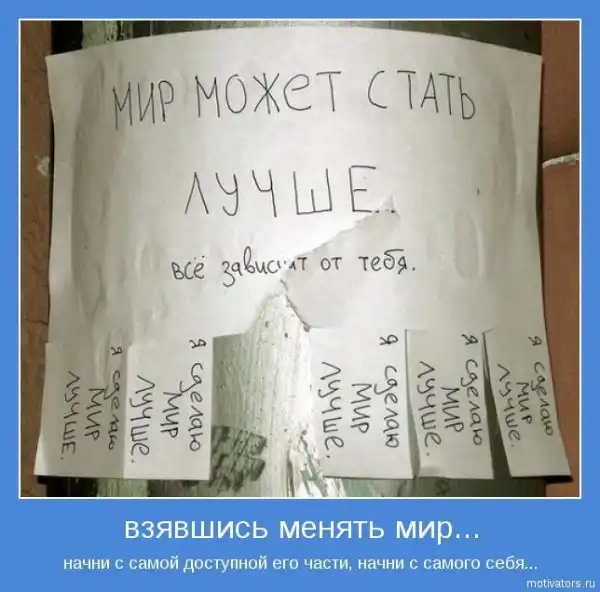 МИР МОЖЕТ СТАТЬ
ЛУЧШЕ..
всё зависит от тебя.
Я сделаю
МИР
ЛУЧШЕ.
Я сделаю
МИР
ЛУЧШЕ.
Я сделаю
МИР
ЛУЧШЕ.
Я сделаю
МИР
ЛУЧШЕ.
Я сделаю
МИР
ЛУЧШЕ.
взявшись менять мир...
начни с самой доступной его части, начни с самого себя...
motivators.ru